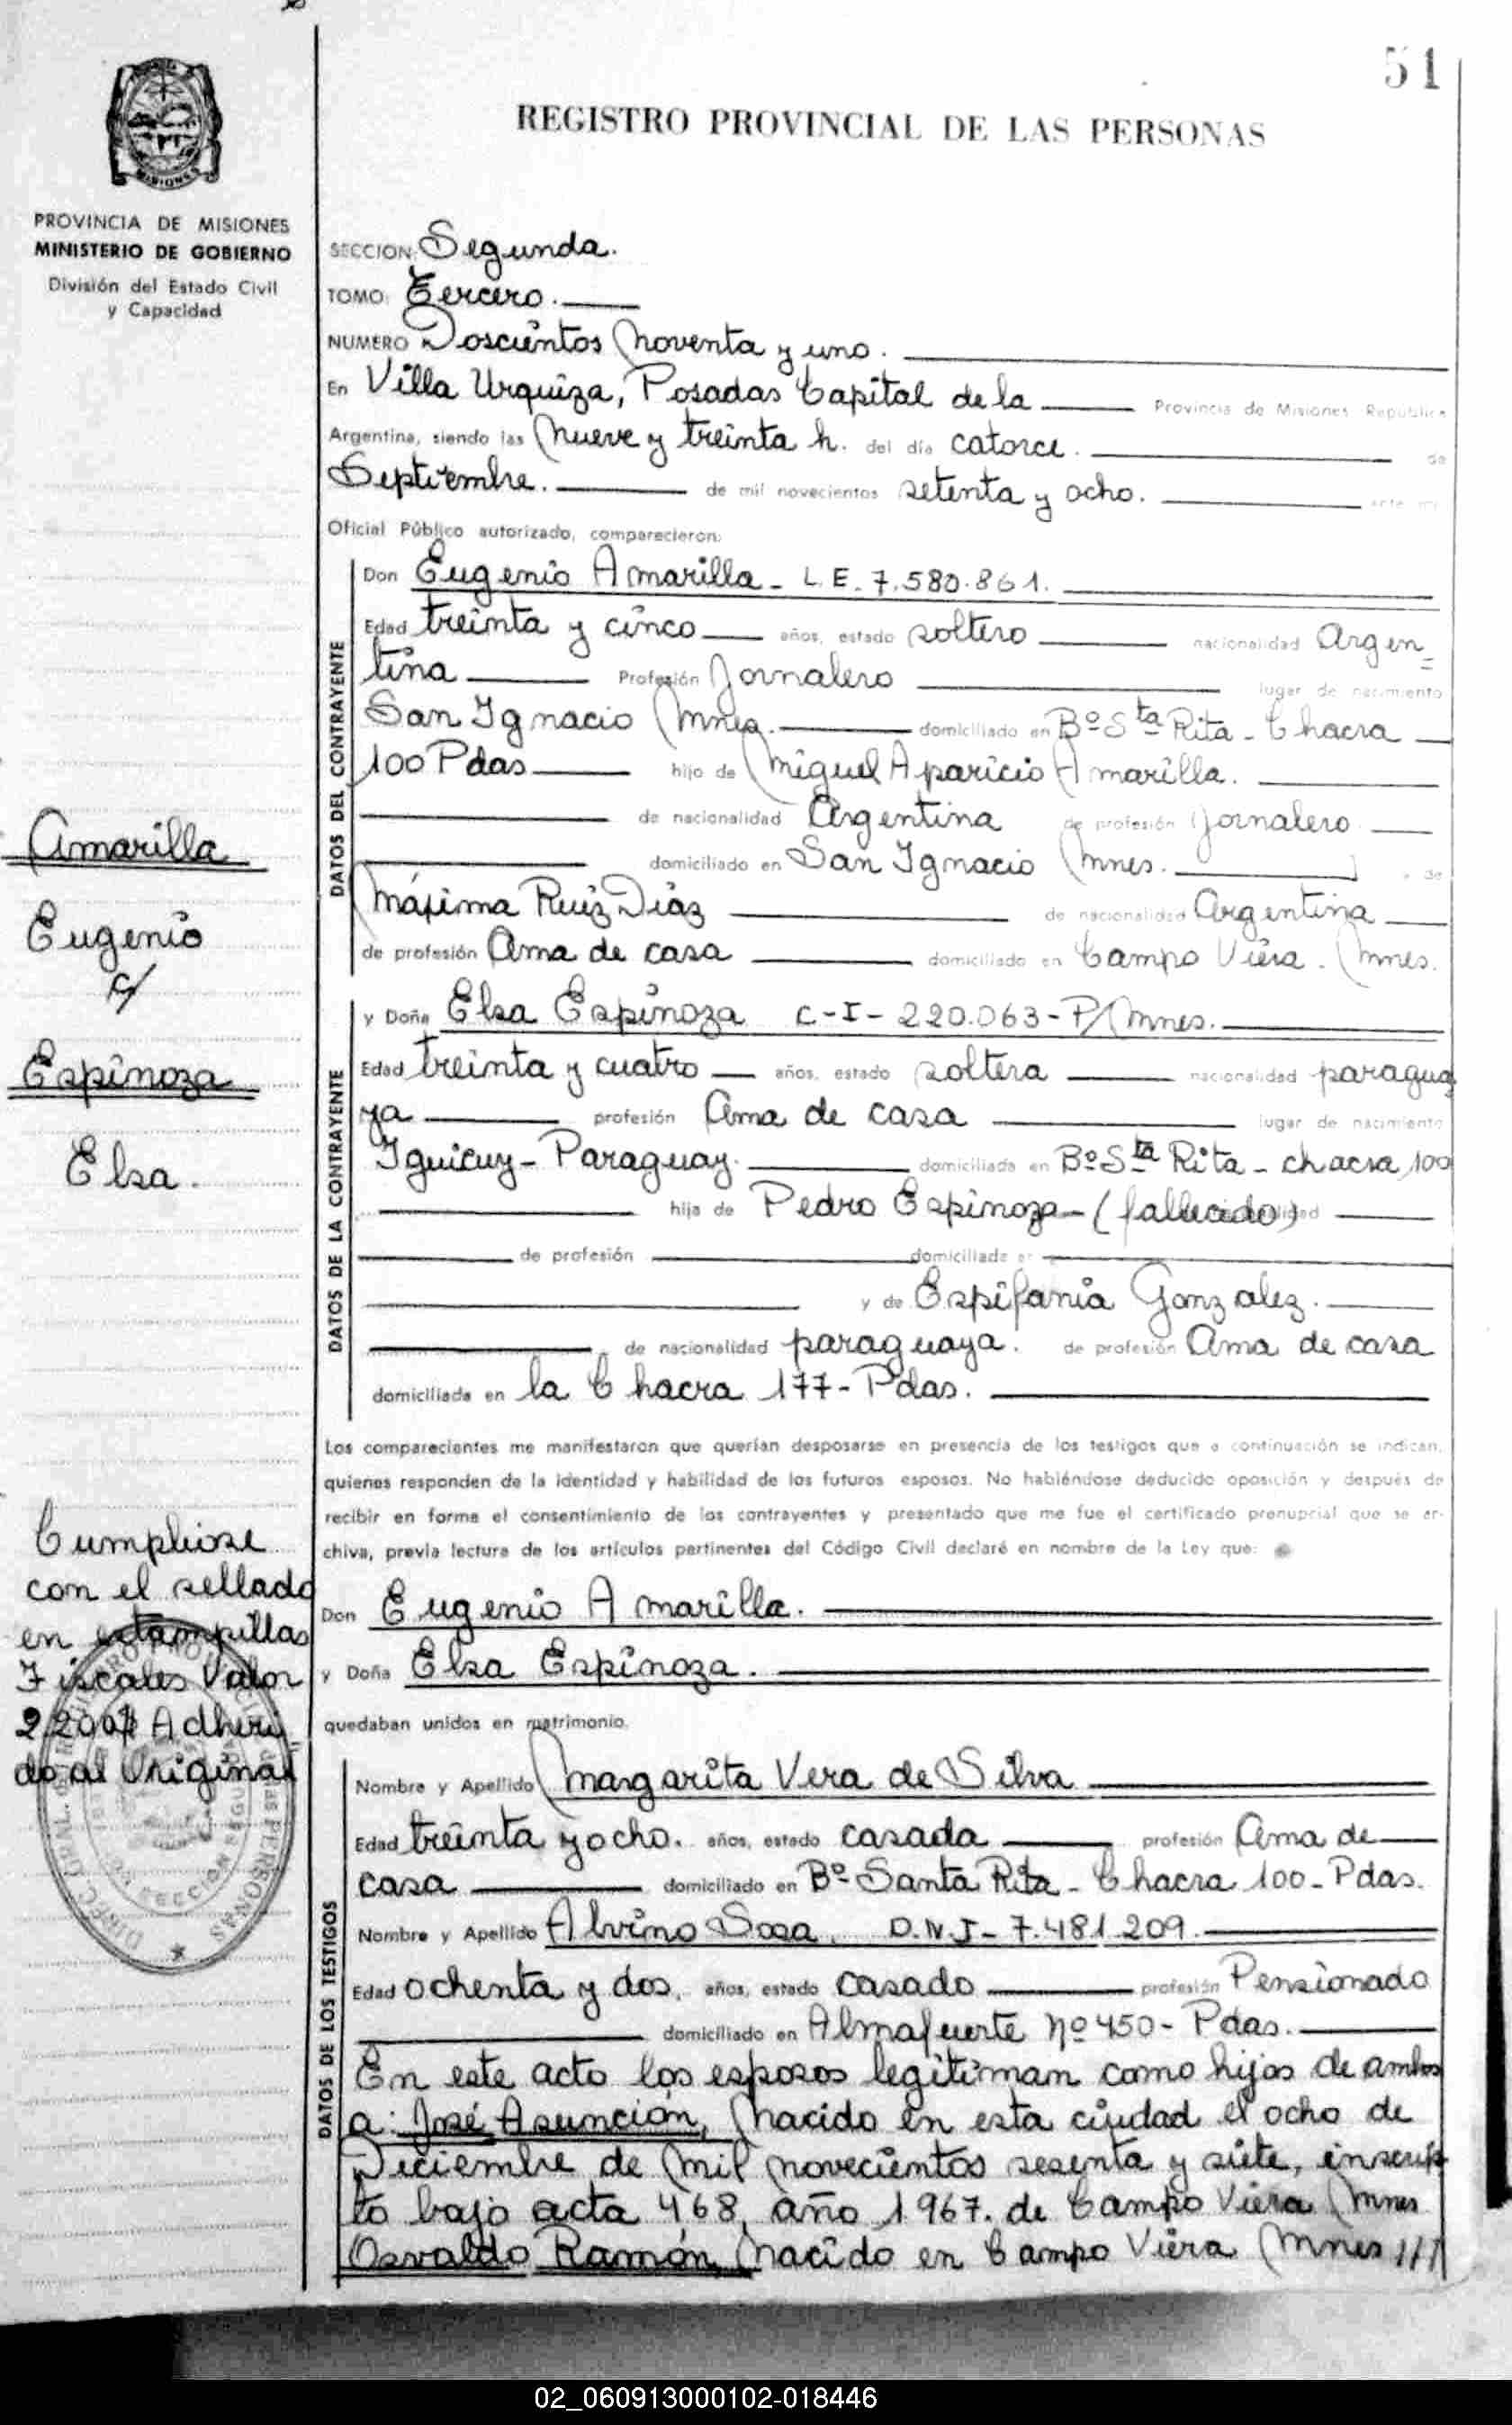 51
REGISTRO PROVINCIAL DE LAS PERSONAS
MISIONES
PROVINCIA DE MISIONES
MINISTERIO DE GOBIERNO
División del Estado Civil
y Capacidad
SECCION: Segunda.
TOMO: Tercero.
NUMERO Doscientos Noventa y uno.
En Villa Urquiza, Posadas Capital de la Provincia de Misiones República
Argentina, siendo las Nueve y treinta h. del día catorce. de
Septiembre. de mil novecientos setenta y ocho. ante mí
Oficial Público autorizado, comparecieron:
DATOS DEL CONTRAYENTE
Don Eugenio Amarilla - L.E. 7.580.861.
Edad treinta y cinco años, estado soltero nacionalidad Argen
tina Profesión Jornalero lugar de nacimiento
San Ignacio Mnes. domiciliado en Bº Sta Rita - Chacra
100 Pdas hijo de Miguel Aparicio Amarilla.
de nacionalidad Argentina de profesión Jornalero
domiciliado en San Ignacio Mnes. y de
Máxima Ruiz Diaz de nacionalidad Argentina
de profesión Ama de casa domiciliado en Campo Viera. Mnes.
Amarilla
Eugenio
c/
Espinoza
Elsa.
DATOS DE LA CONTRAYENTE
y Doña Elsa Espinoza C-I-220.063-P/Mnes.
Edad treinta y cuatro años, estado soltera nacionalidad paragua
ya profesión Ama de casa lugar de nacimiento
Iguicuy - Paraguay. domiciliada en Bº Sta Rita - chacra 100
hija de Pedro Espinoza - (fallecido)
de profesión domiciliado en
y de Espifania Gonzalez.
de nacionalidad paraguaya. de profesión Ama de casa
domiciliada en la Chacra 177 - Pdas.
Los comparecientes me manifestaron que querían desposarse en presencia de los testigos que a continuación se indican,
quienes responden de la identidad y habilidad de los futuros esposos. No habiéndose deducido oposición y después de
recibir en forma el consentimiento de los contrayentes y presentado que me fue el certificado prenupcial que se ar-
chiva, previa lectura de los artículos pertinentes del Código Civil declaré en nombre de la Ley que:
Don Eugenio Amarilla.
y Doña Elsa Espinoza.
quedaban unidos en matrimonio.
Cumpliose
con el sellado
en estampillas
Fiscales Valor
Adheri
do al Original
DATOS DE LOS TESTIGOS
Nombre y Apellido Margarita Vera de Silva
Edad treinta y ocho. años, estado casada profesión Ama de
casa domiciliado en Bº Santa Rita - Chacra 100 - Pdas.
Nombre y Apellido Alvino Sosa D.N.I - 7.481.209.
Edad ochenta y dos, años, estado casado profesión Pensionado
domiciliado en Almafuerte Nº 450 - Pdas.
En este acto los esposos legitiman como hijos de ambos
a: José Asunción, Nacido en esta ciudad el ocho de
Diciembre de Mil Novecientos sesenta y siete, inscrip
to bajo acta 468, año 1967. de Campo Viera Mnes
Osvaldo Ramón, Nacido en Campo Viera Mnes ///
02_060913000102-018446